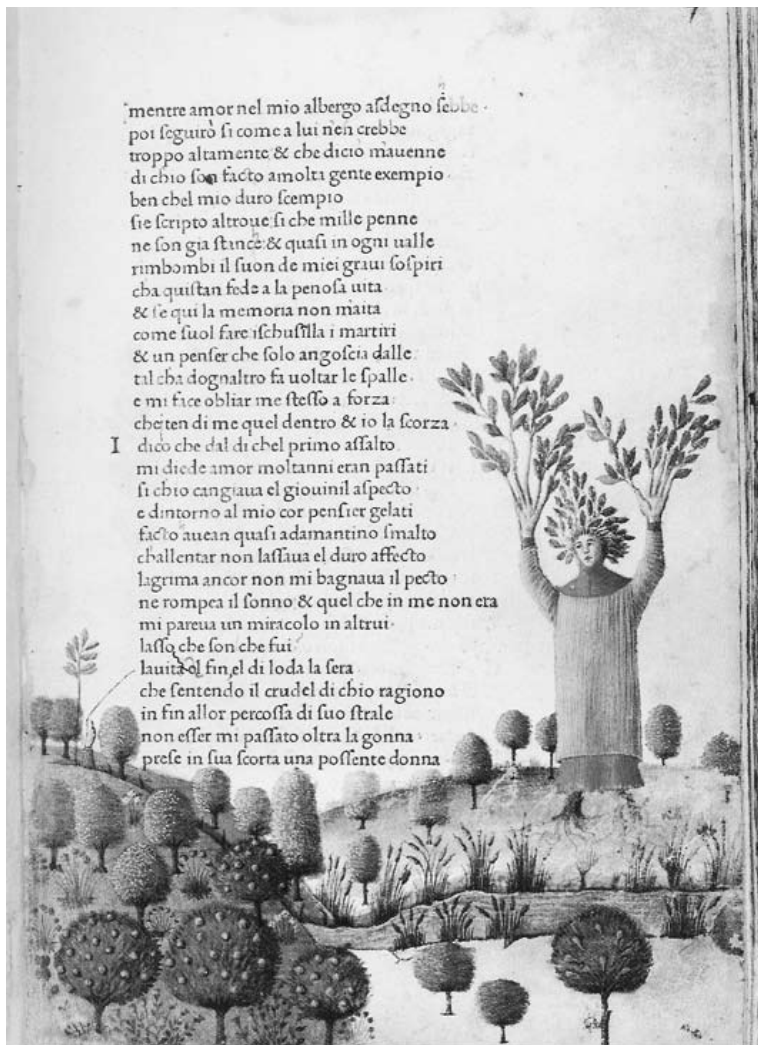 mentre amor nel mio albergo asdegno sebbe
poi seguiro si come a lui n'en crebbe
troppo altamente & che dicio m'auenne
di chio son facto a molta gente exempio
ben chel mio duro scempio
sie scripto altroue si che mille penne
ne son gia stance & quasi in ogni ualle
rimbombi il suon de miei graui sospiri
cha quistan fede a la penosa uita
& se qui la memoria non m'aita
come suol fare ischusilla i martiri
& un penser che solo angoscia dalle
tal cha dognaltro fa uoltar le spalle
e mi face obliar me stesso a forza
che ten di me quel dentro & io la scorza
I dico che dal di chel primo assalto
mi diede amor moltanni eran passati
si chio cangiaua el giouinil aspecto
e dintorno al mio cor pensier gelati
facto auean quasi adamantino smalto
challentar non lassaua el duro affecto
lagrima ancor non mi bagnaua il pecto
ne rompea il sonno & quel che in me non era
mi pareua un miracolo in altrui
lasso che son che fui
la uita el fin el di loda la sera
che sentendo il crudel di chio ragiono
in fin allor percossa di suo strale
non esser mi passato oltra la gonna
prese in sua scorta una possente donna